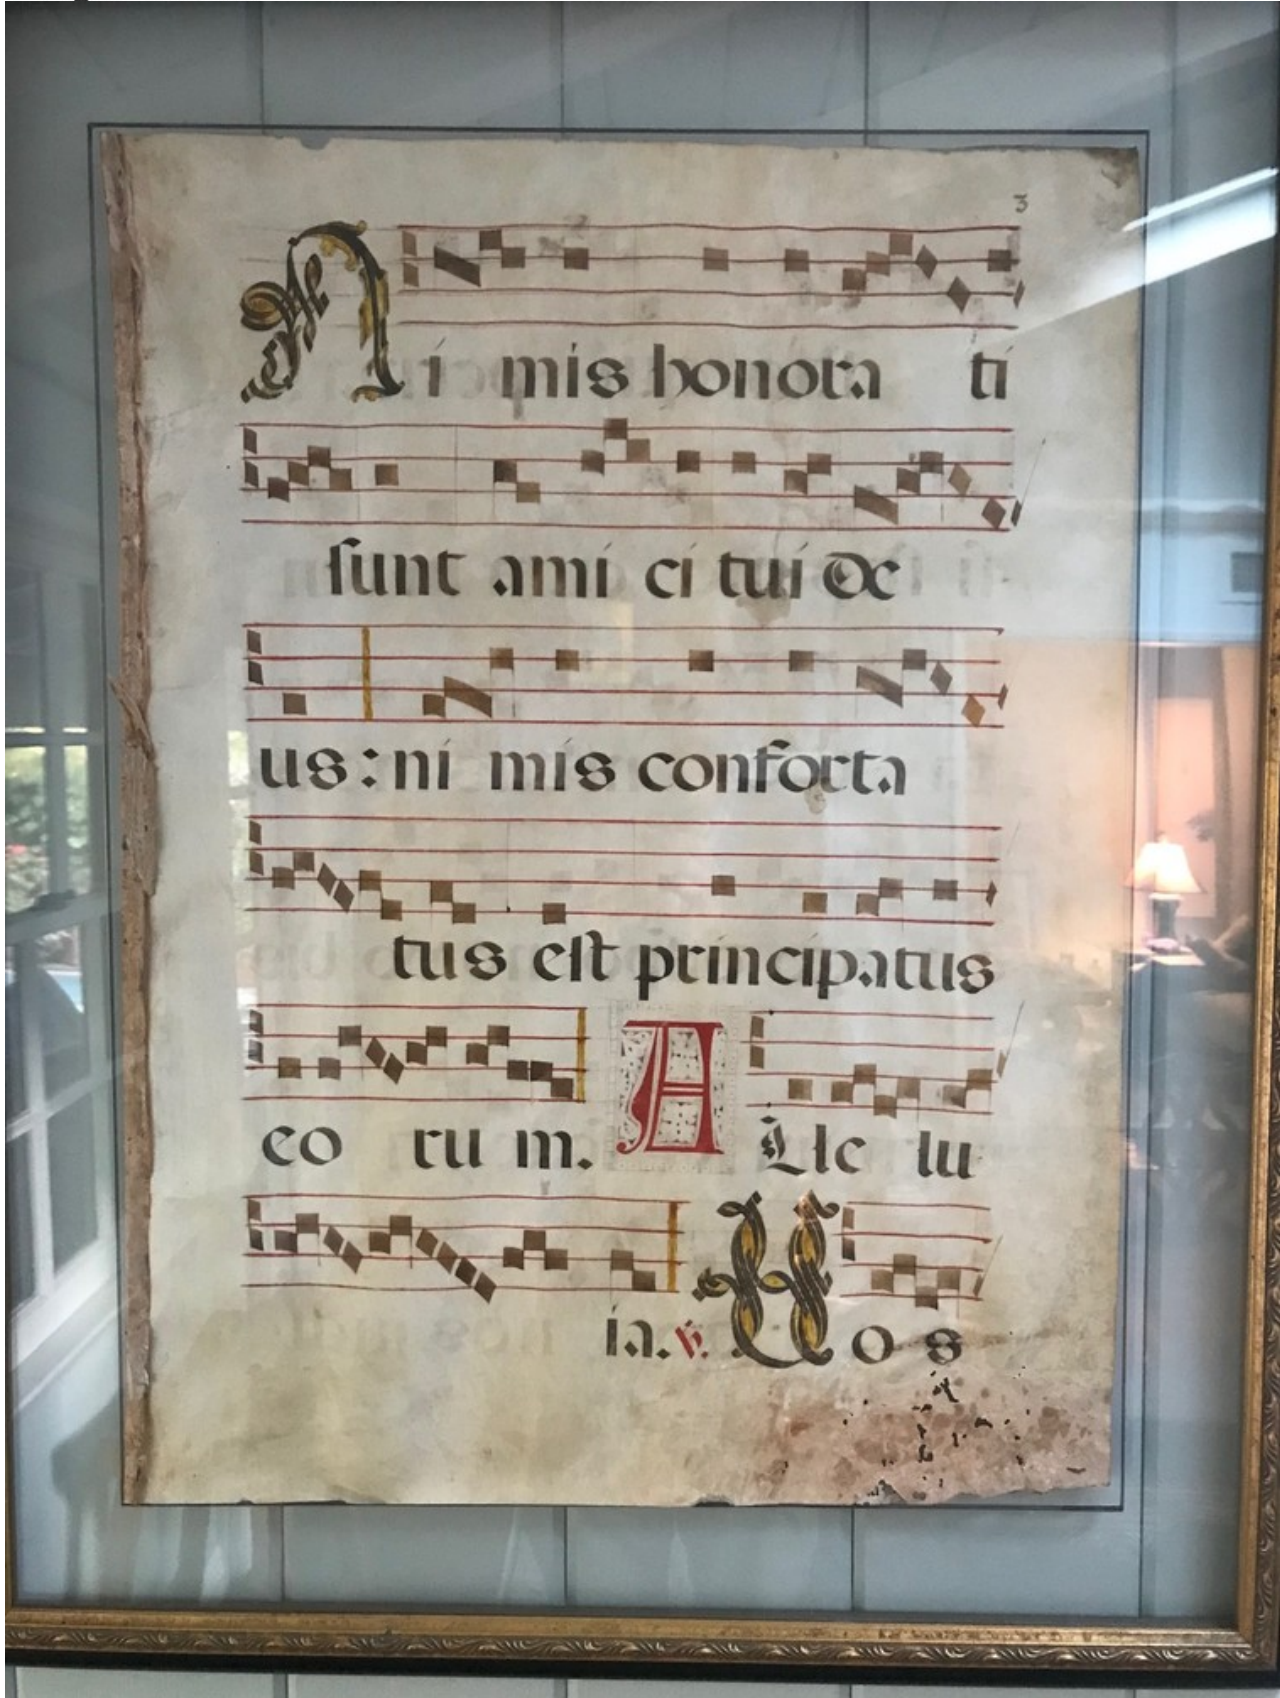 3
Ni mis honora ti
sunt ami ci tui De
us: ni mis conforta
tus est principatus
eo ru m. A Lle lu
ia. ℣. Vos